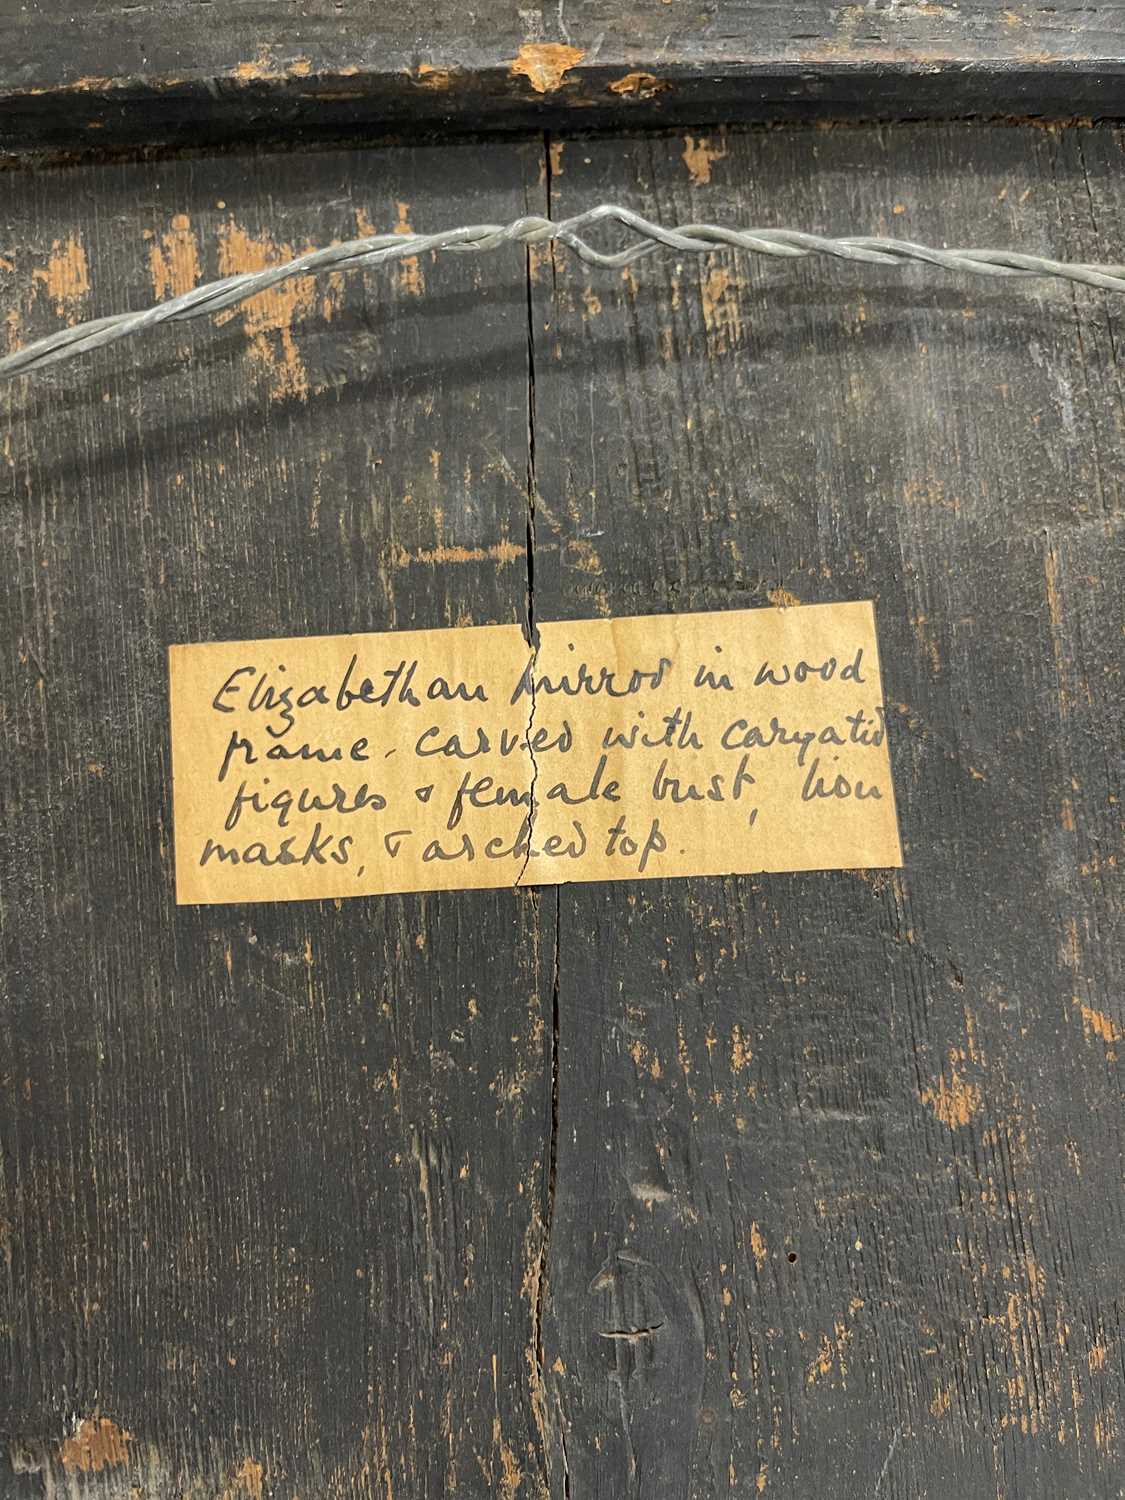 Elizabethan mirror in wood
frame. carved with caryatid
figures & female bust, lion
masks, & arched top.